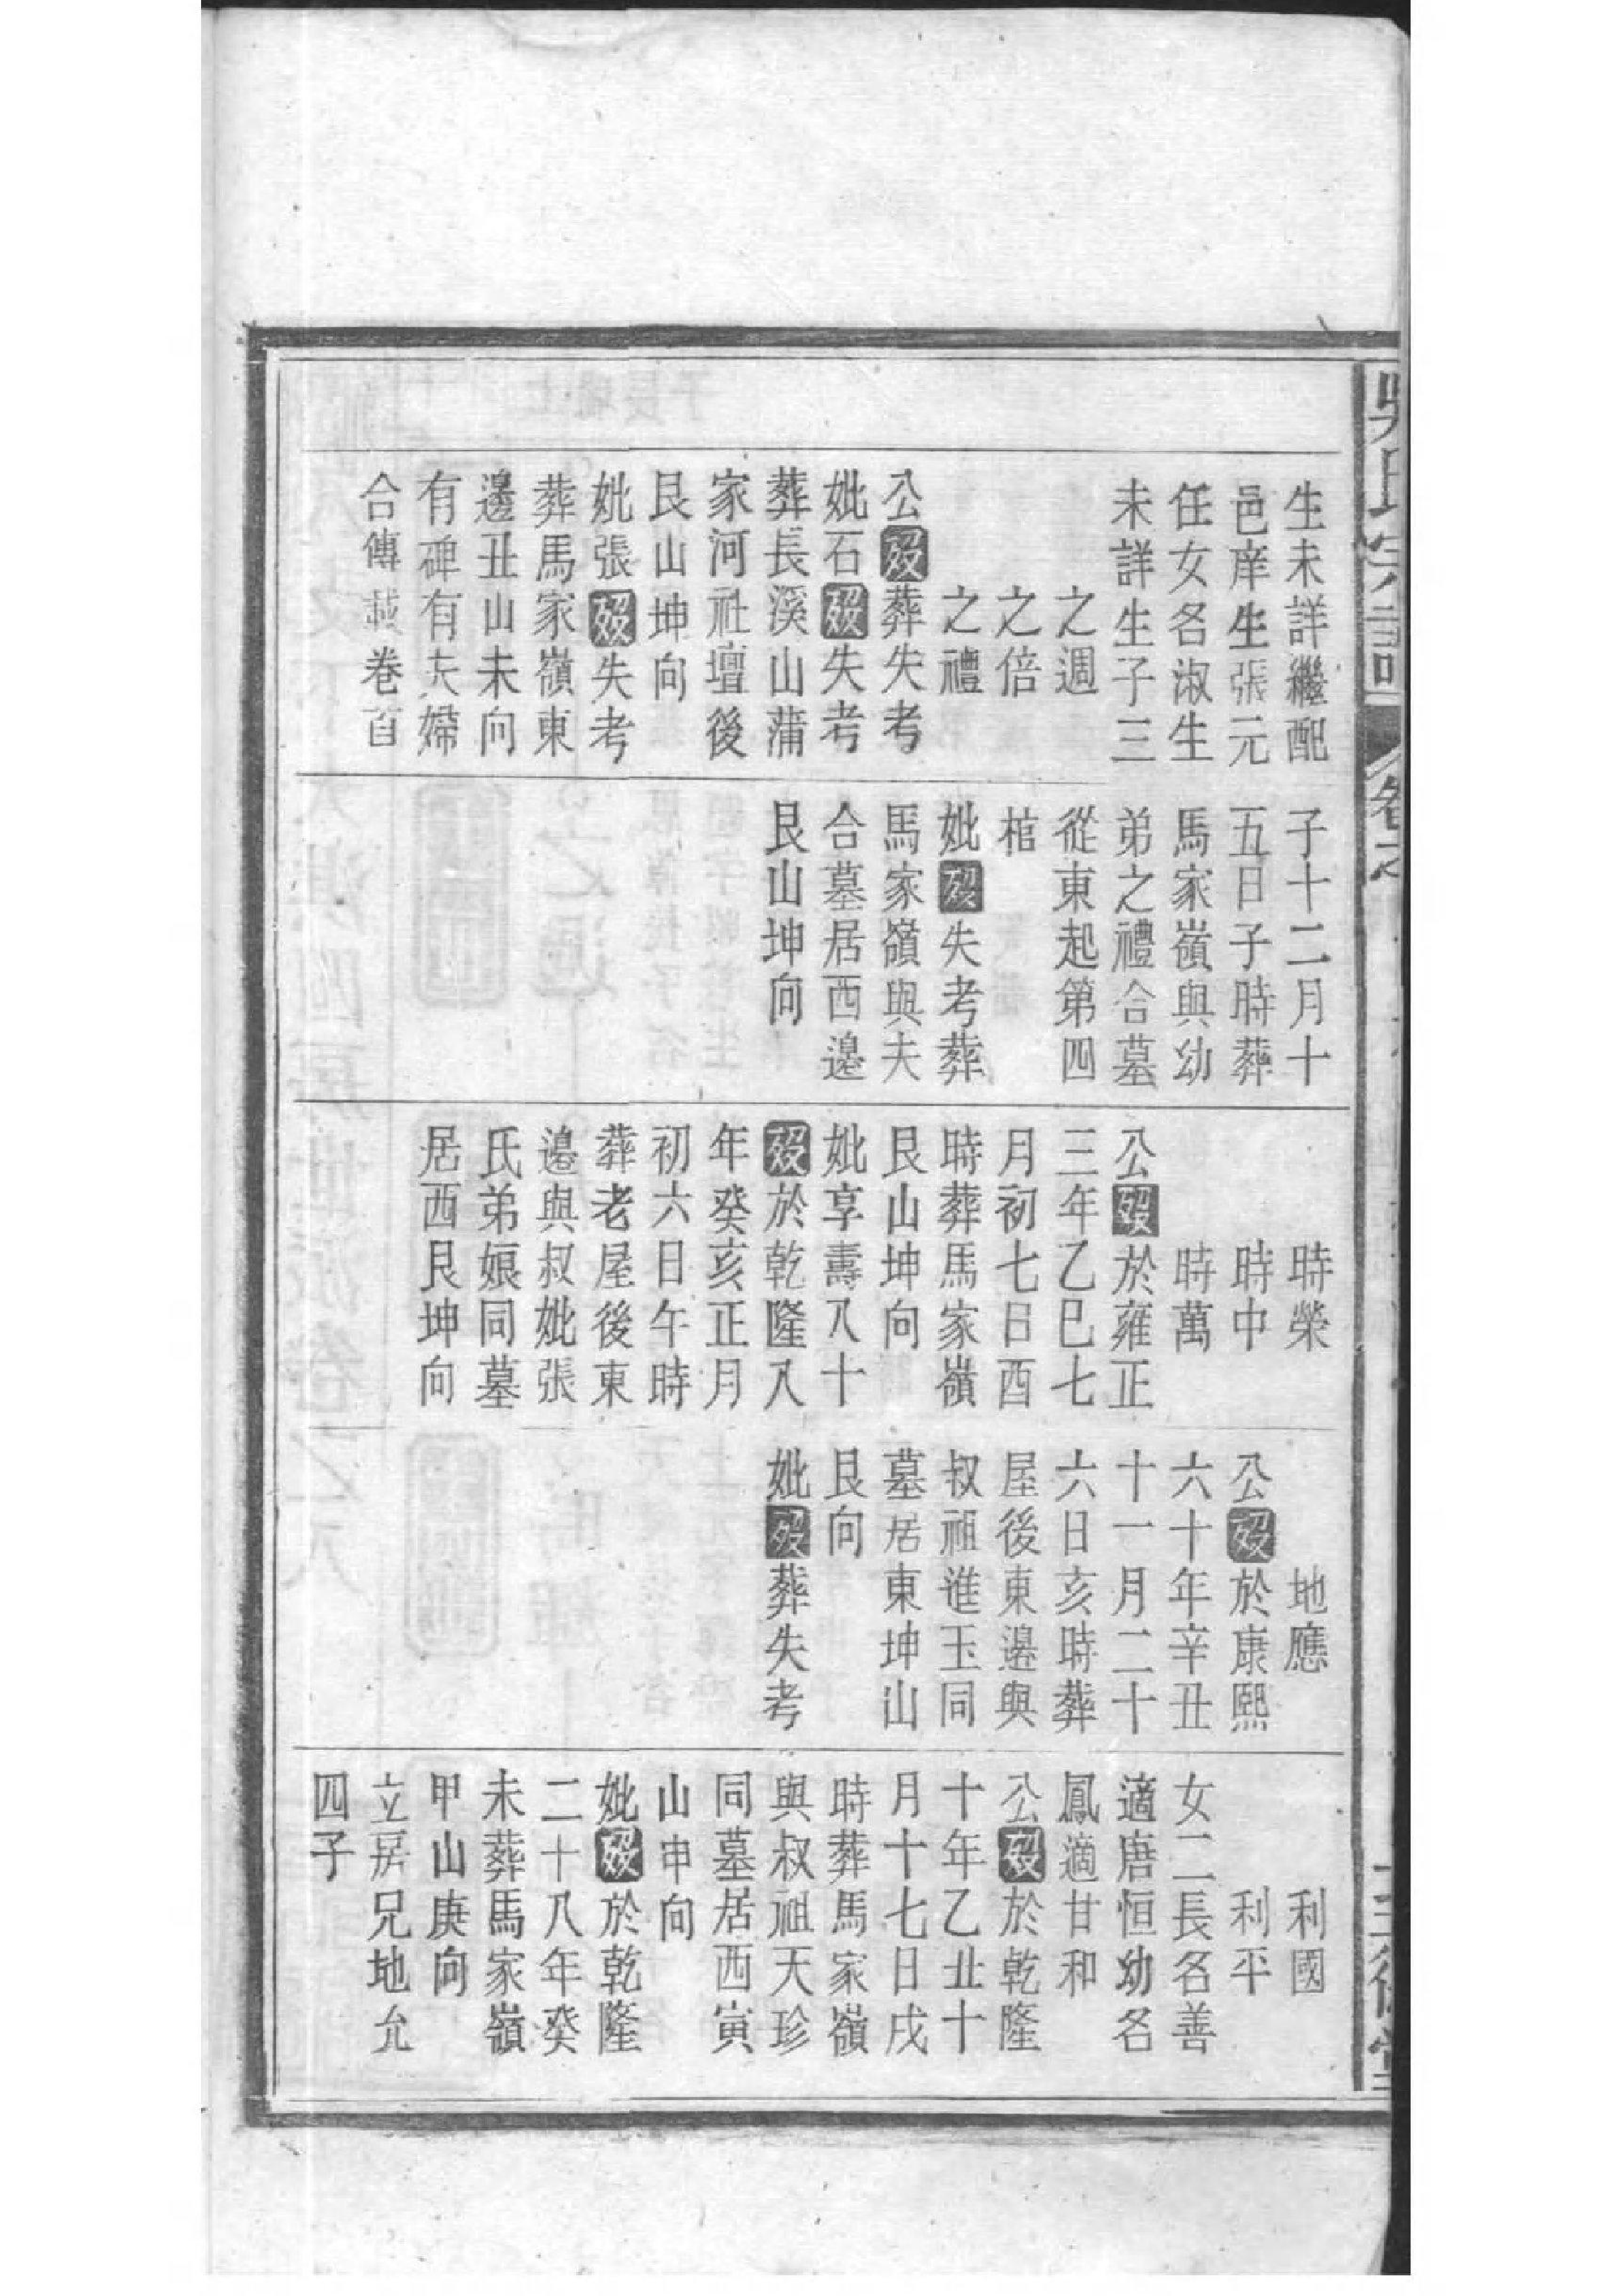 生未詳繼配
邑庠生張元
任女名淑生
未詳生子三
之週
之倍
之禮
公歿葬失考
妣石歿失考
葬長溪山蒲
家河社壇後
艮山坤向
妣張歿失考
葬馬家嶺東
邊丑山未向
有碑有夫婦
合傳載卷首
子十二月十
五日子時葬
馬家嶺與幼
弟之禮合墓
從東起第四
棺
妣歿失考葬
馬家嶺與夫
合墓居西邊
艮山坤向
時榮
時中
時萬
公歿於雍正
三年乙巳七
月初七日酉
時葬馬家嶺
艮山坤向
妣享壽八十
歿於乾隆八
年癸亥正月
初六日午時
葬老屋後東
邊與叔妣張
氏弟娘同墓
居西艮坤向
地應
公歿於康熙
六十年辛丑
十一月二十
六日亥時葬
屋後東邊與
叔祖進玉同
墓居東坤山
艮向
妣歿葬失考
利國
利平
女二長名善
適唐恒幼名
鳳適甘和
公歿於乾隆
十年乙丑十
月十七日戌
時葬馬家嶺
與叔祖天珍
同墓居西寅
山申向
妣歿於乾隆
二十八年癸
未葬馬家嶺
甲山庚向
立房兄地允
四子